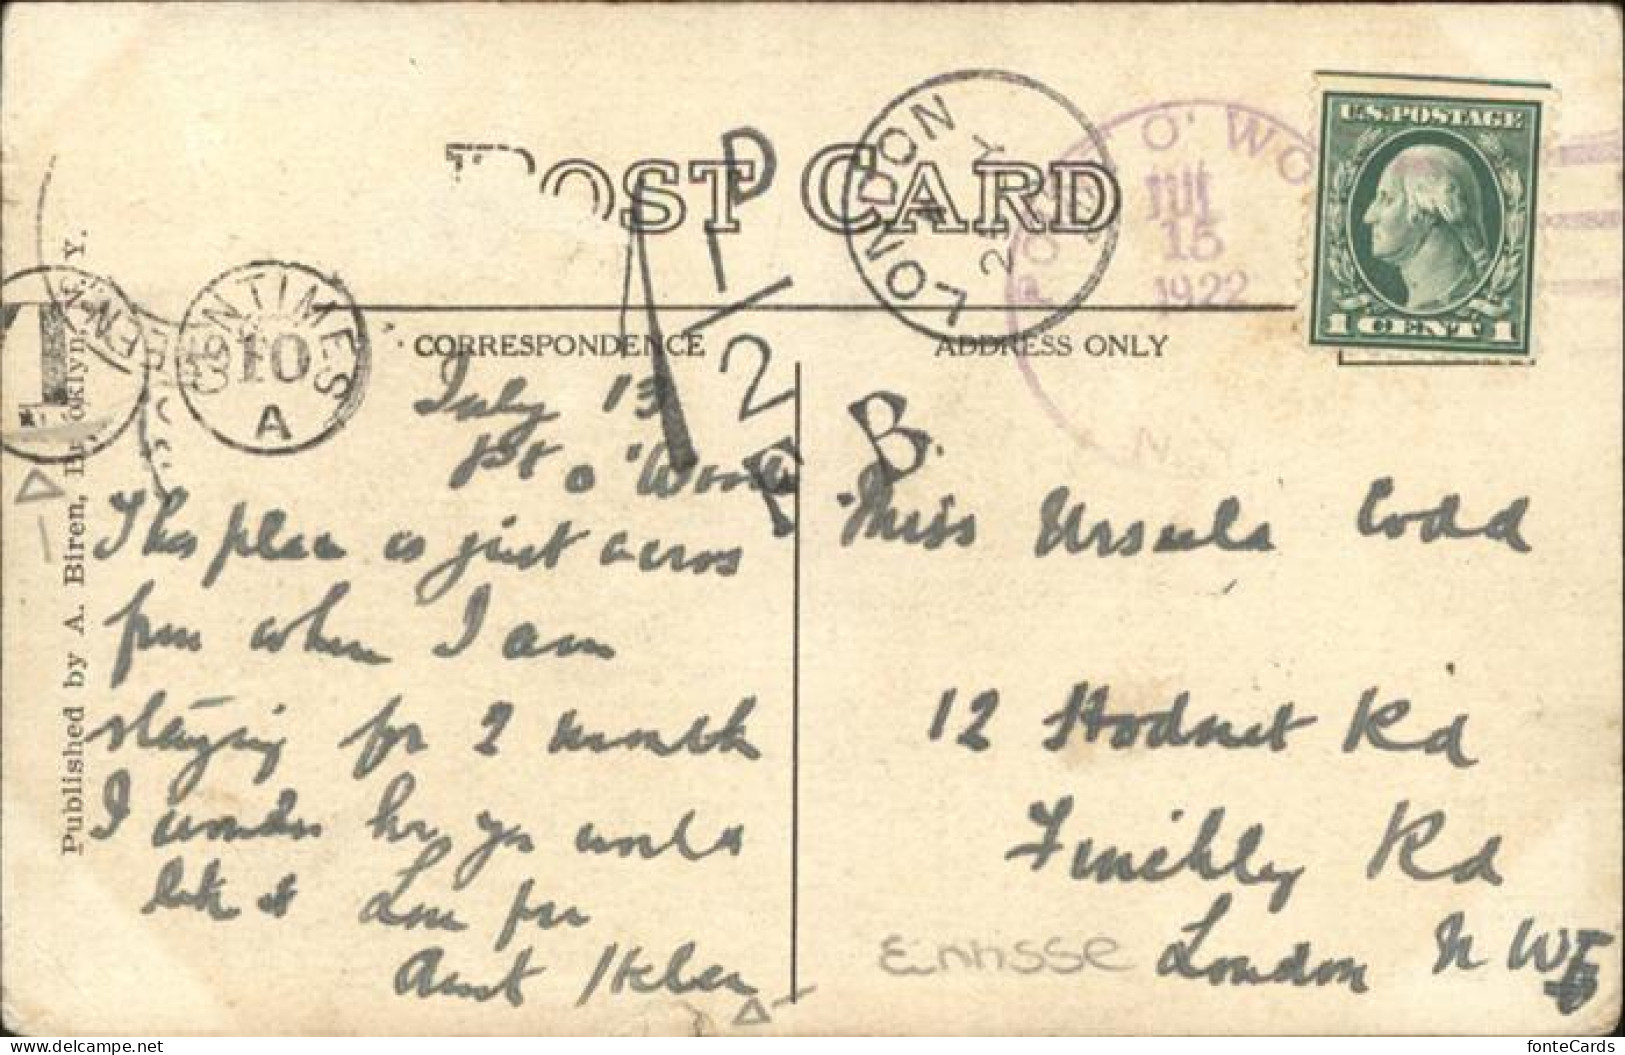 POST CARD
CORRESPONDENCE
ADDRESS ONLY
Published by A. Biren, Brooklyn, N. Y.
U.S. POSTAGE
1 CENT 1
POINT O' WO
JUL
15
1922
N.Y.
LONDON
CENTIMES
10
A
T
1D
/
2
F.B.
July 13
Pt o' Woods
This place is just across
from where I am
staying for 2 months
I wonder how you would
like it Love from
Aunt Helen
Miss Ursula Codd
12 Hodnet Rd
Finchly Rd
London N W
fonteCards